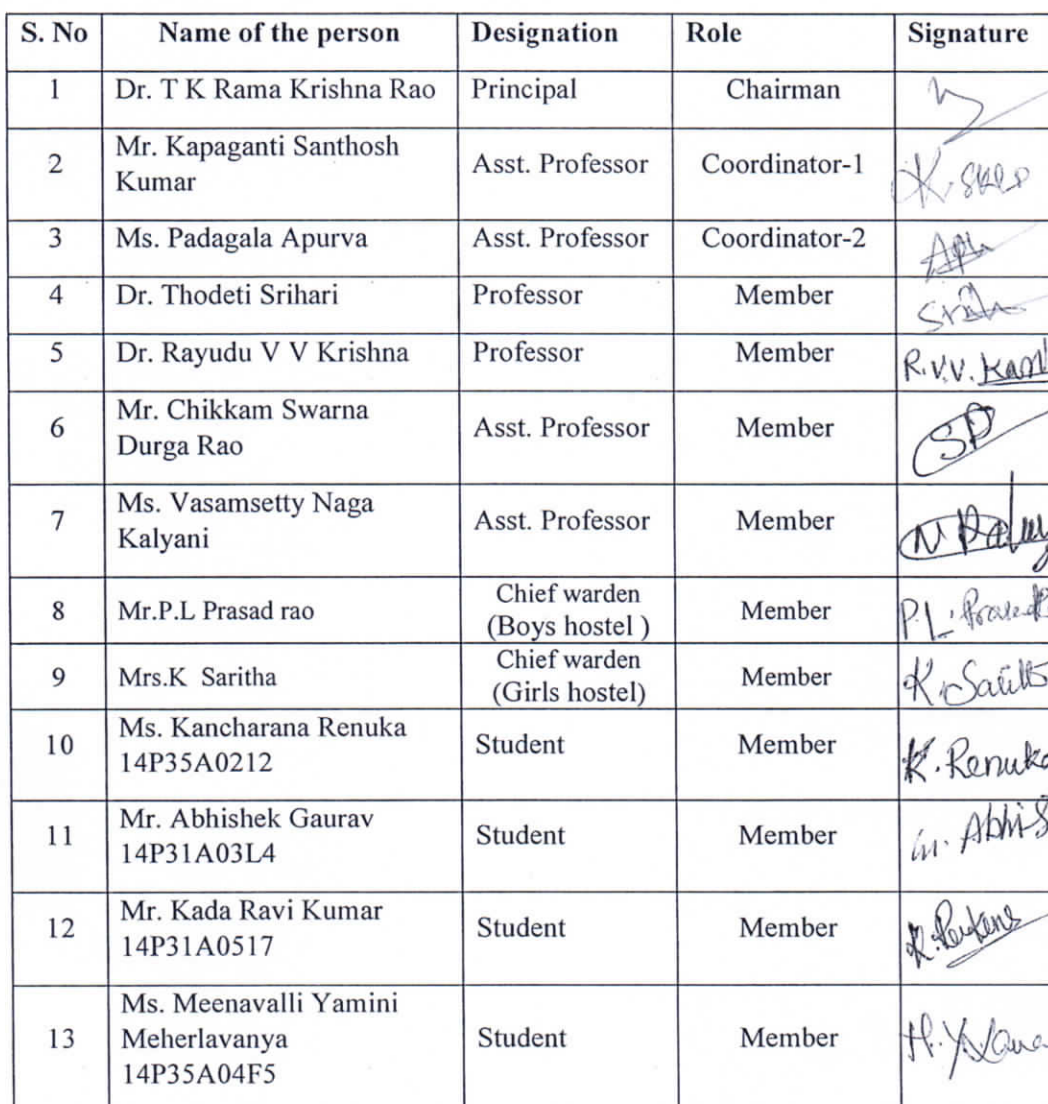 S. No Name of the person Designation Role Signature
1 Dr. T K Rama Krishna Rao Principal Chairman
2 Mr. Kapaganti Santhosh Kumar Asst. Professor Coordinator-1
3 Ms. Padagala Apurva Asst. Professor Coordinator-2
4 Dr. Thodeti Srihari Professor Member
5 Dr. Rayudu V V Krishna Professor Member R.V.V.
6 Mr. Chikkam Swarna
Durga Rao Asst. Professor Member
7 Ms. Vasamsetty Naga
Kalyani Asst. Professor Member
8 Mr.P.L Prasad rao Chief warden
(Boys hostel ) Member P.L.
9 Mrs.K Saritha Chief warden
(Girls hostel) Member K.
10 Ms. Kancharana Renuka
14P35A0212 Student Member K. Renuka
11 Mr. Abhishek Gaurav
14P31A03L4 Student Member
12 Mr. Kada Ravi Kumar
14P31A0517 Student Member
13 Ms. Meenavalli Yamini
Meherlavanya
14P35A04F5 Student Member